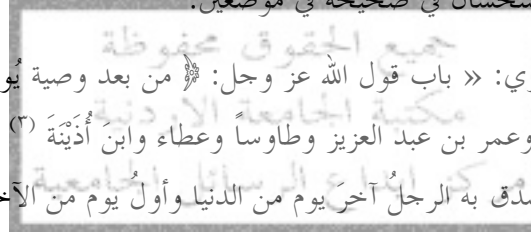 في صحيحه في موضعين.
جميع الحقوق محفوظة
ري: « باب قول الله عز وجل: ﴿ من بعد وصية يُو
مكتبة الجامعة الاردنية
وعمر بن عبد العزيز وطاوساً وعطاء وابنَ أُذَيْنَةَ (٣)
مركز ايداع الرسائل الجامعية
دق به الرجلُ آخرَ يوم من الدنيا وأولُ يوم من الآخ